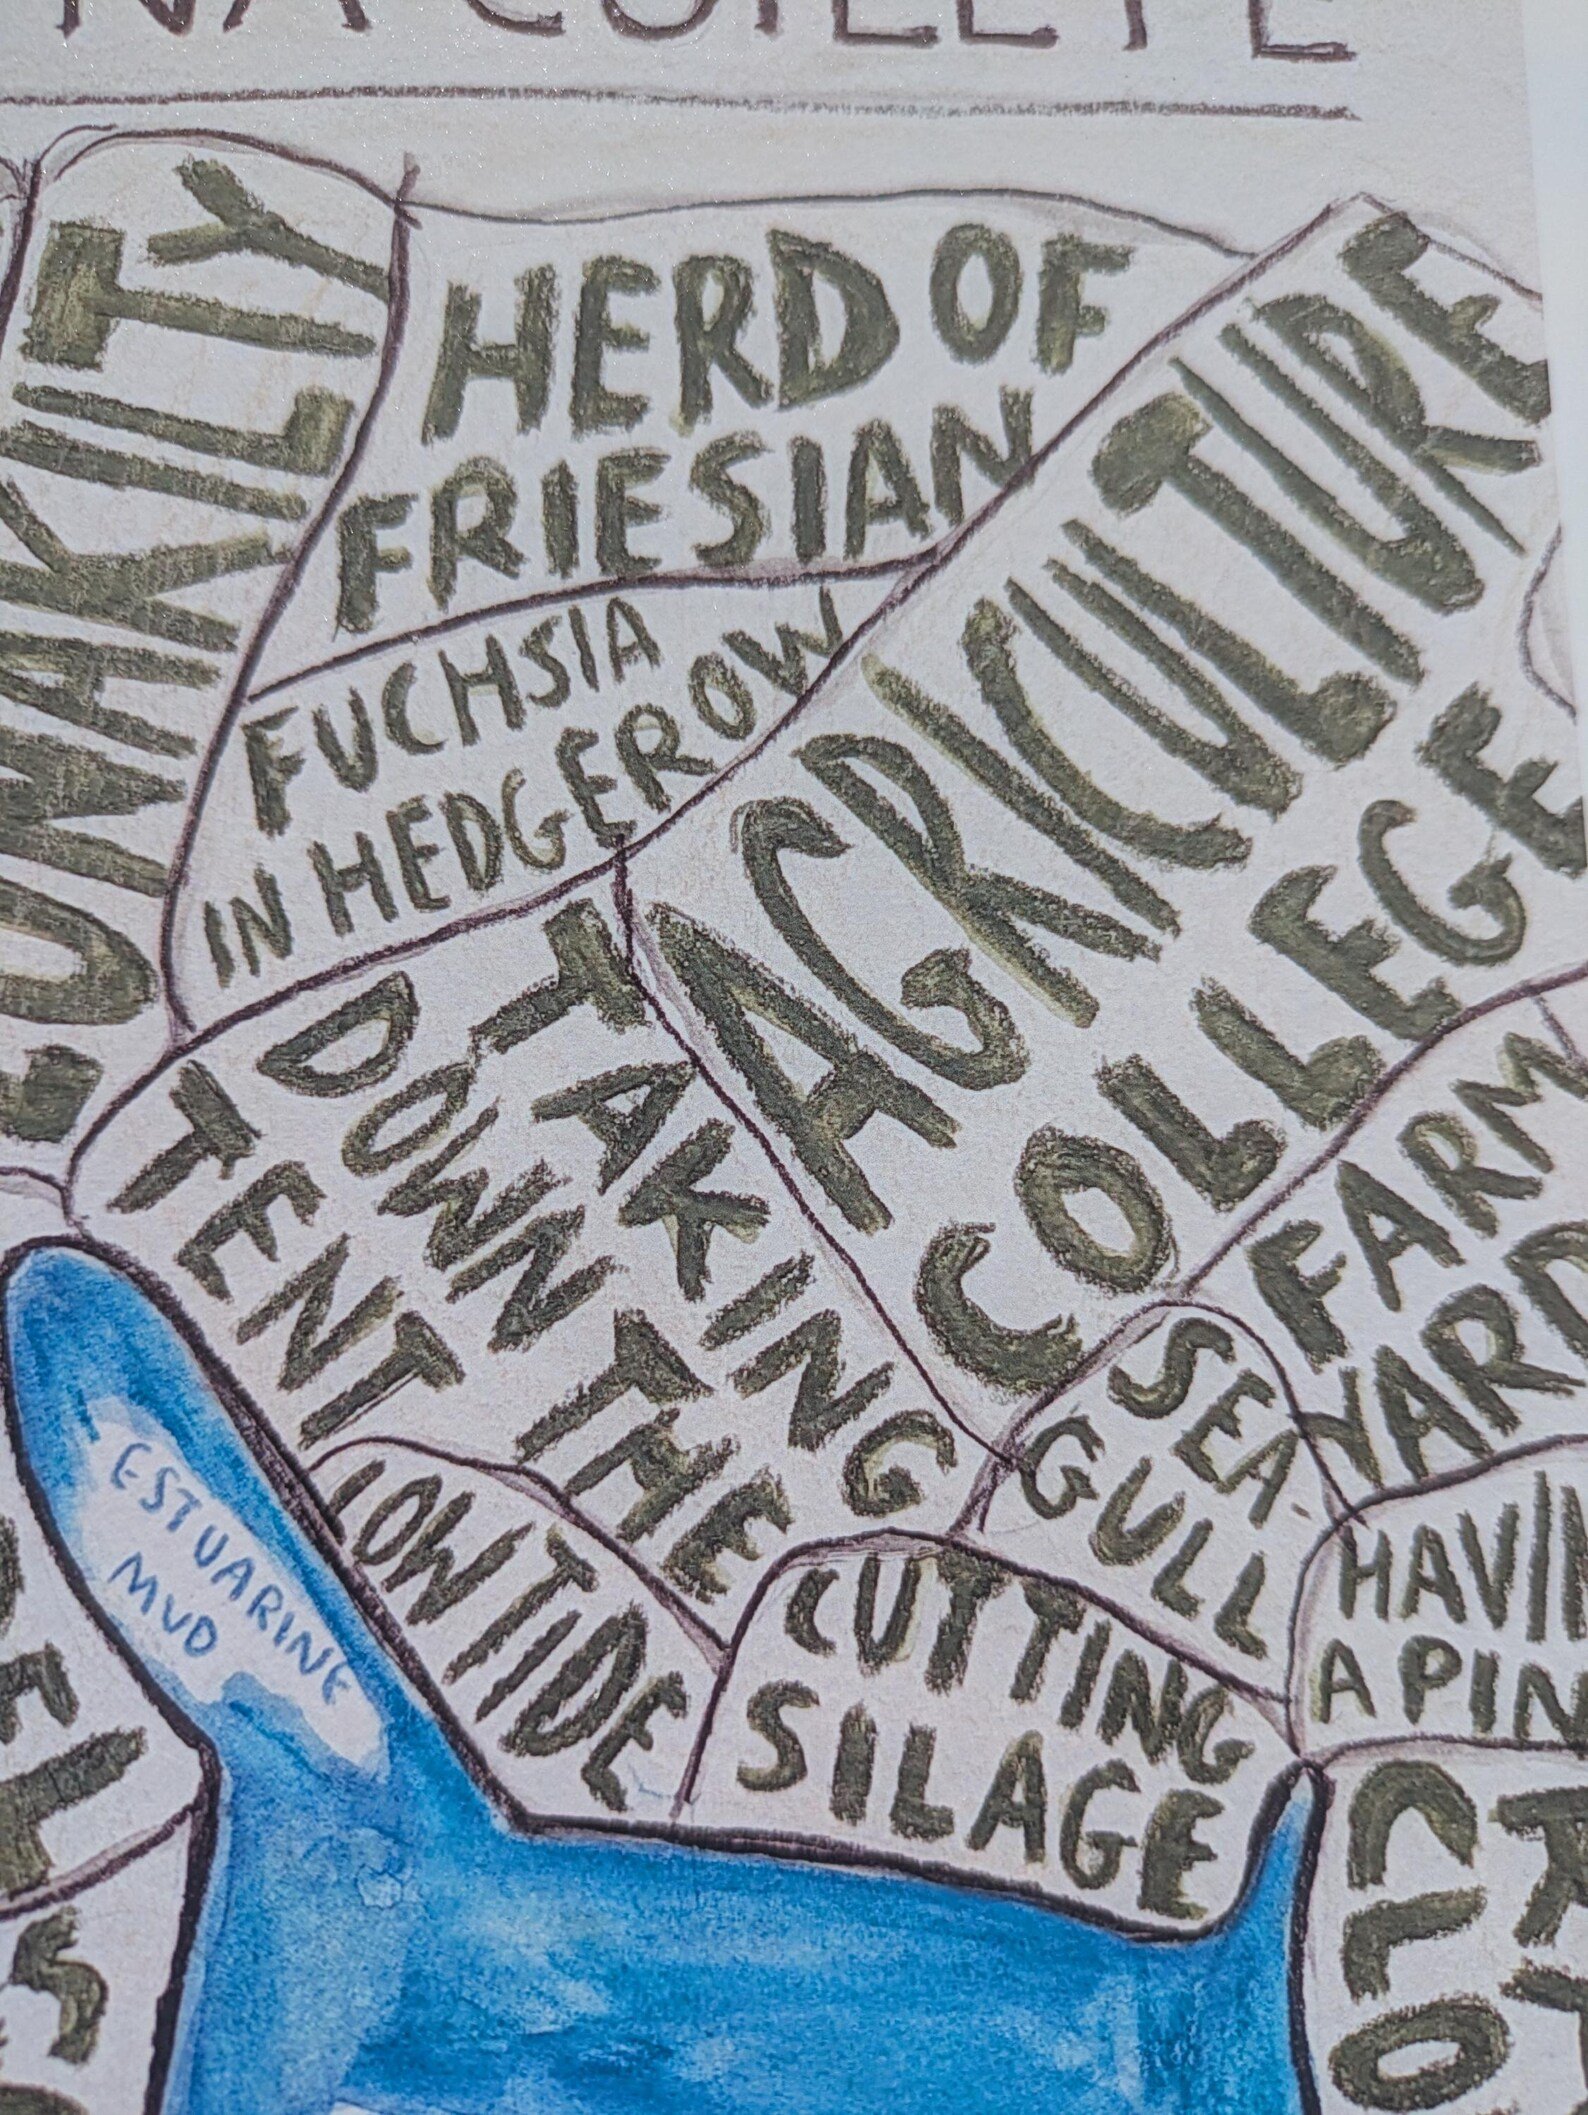 NA COILLTE
HERD OF
FRIESIAN
FUCHSIA
IN HEDGEROW
AGRICULTURE
COLLEGE
TAKING
DOWN THE
TENT
FARM
YARD
SEA
GULL
LOW TIDE
CUTTING
SILAGE
ESTUARINE
MUD
A PIN
CLO